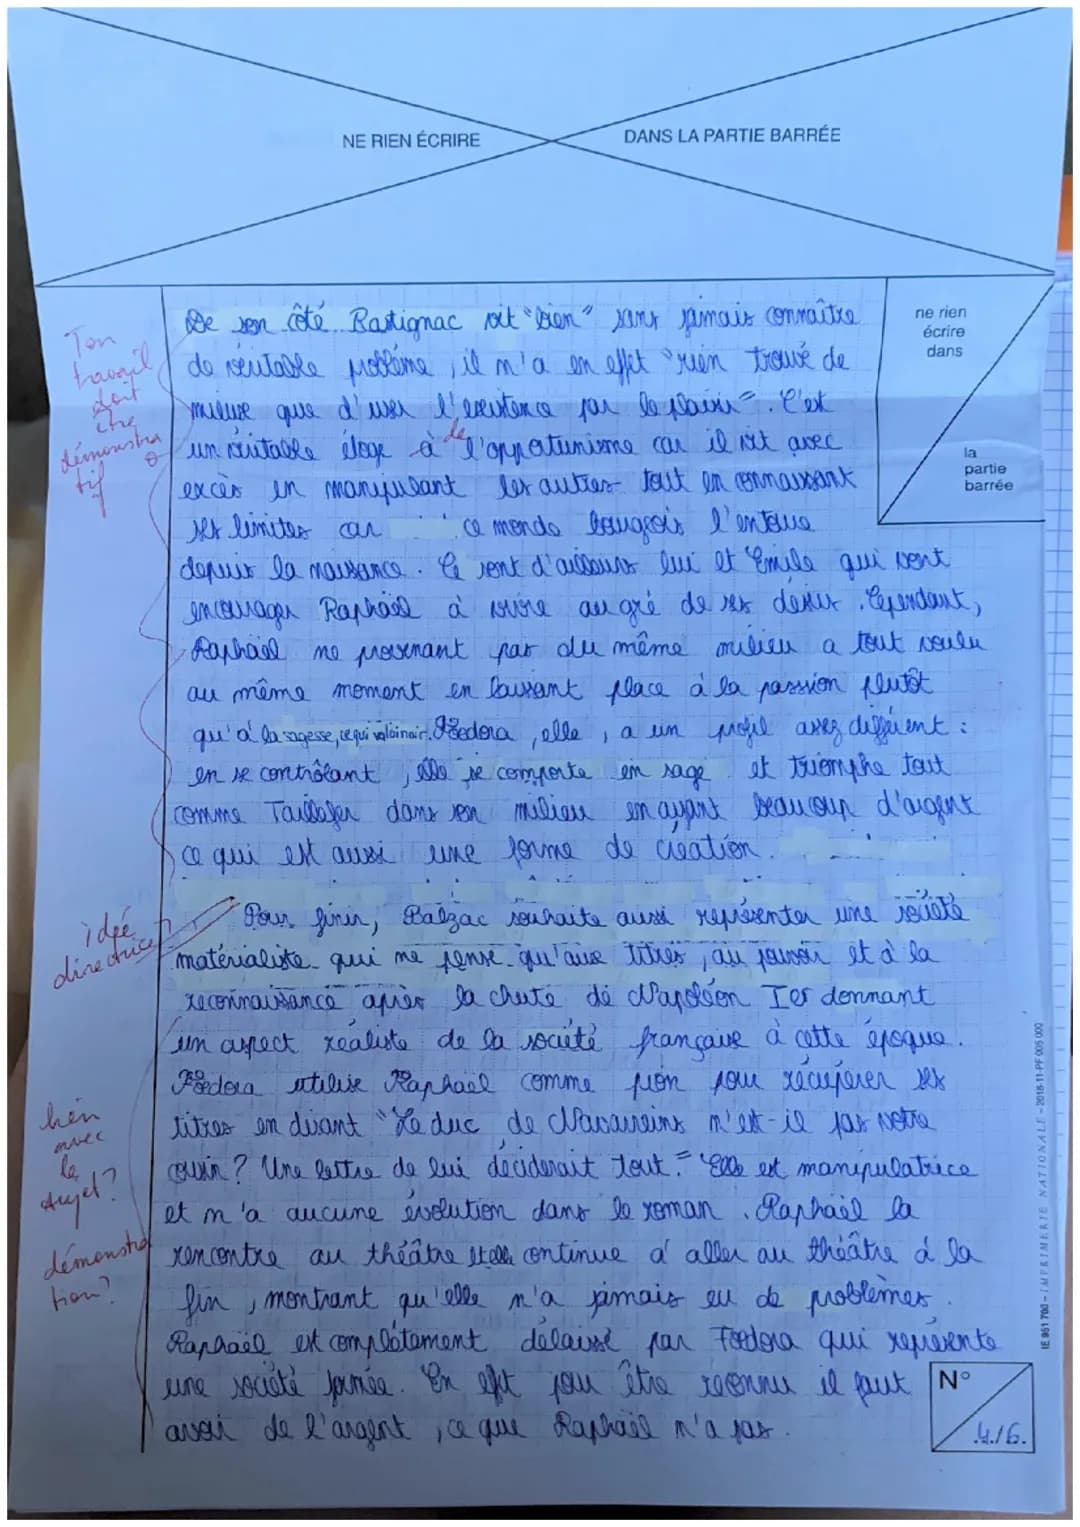 NE RIEN ÉCRIRE
DANS LA PARTIE BARRÉE
ne rien
écrire
dans
la
partie
barrée
Ton
travail
doit
être
démonstra
tif
De son côté Rastignac vit "bien" sans jamais connaître
de véritable problème, il n'a en effet "rien trouvé de
mieux que d'user l'existence par le plaisir". C'est
un véritable éloge à de l'opportunisme car il vit avec
excès en manipulant les autres tout en connaissant
ses limites car ce monde bourgeois l'entoure
depuis la naissance. Ce sont d'ailleurs lui et Emile qui vont
encourager Raphaël à vivre au gré de ses désirs. Cependant,
Raphaël ne provenant pas du même milieu a tout voulu
au même moment en laissant place à la passion plutôt
qu'à la sagesse, ce qui va Foedora, elle, a un profil assez différent :
en se contrôlant, elle se comporte en sage et triomphe tout
comme Taillefer dans son milieu en ayant beaucoup d'argent
ce qui est aussi une forme de création.
idée
directrice
Pour finir, Balzac souhaite aussi représenter une société
matérialiste qui ne pense qu'aux titres, au pouvoir et à la
reconnaissance après la chute de Napoléon Ier donnant
un aspect réaliste de la société française à cette époque.
Foedora utilise Raphaël comme pion pour récupérer ses
titres en disant "Le duc de Navarreins n'est-il pas votre
cousin ? Une lettre de lui déciderait tout." Elle est manipulatrice
et n'a aucune évolution dans le roman. Raphaël la
rencontre au théâtre et elle continue à aller au théâtre à la
fin, montrant qu'elle n'a jamais eu de problèmes.
Raphaël est complètement délaissé par Foedora qui représente
une société fermée. En effet pour être reconnu il faut
avoir de l'argent, ce que Raphaël n'a pas.
lien
avec
le
sujet?
démonstra
tion?
IE 951 700 - IMPRIMERIE NATIONALE - 2018-11-PF 005 000
N°
4./6.